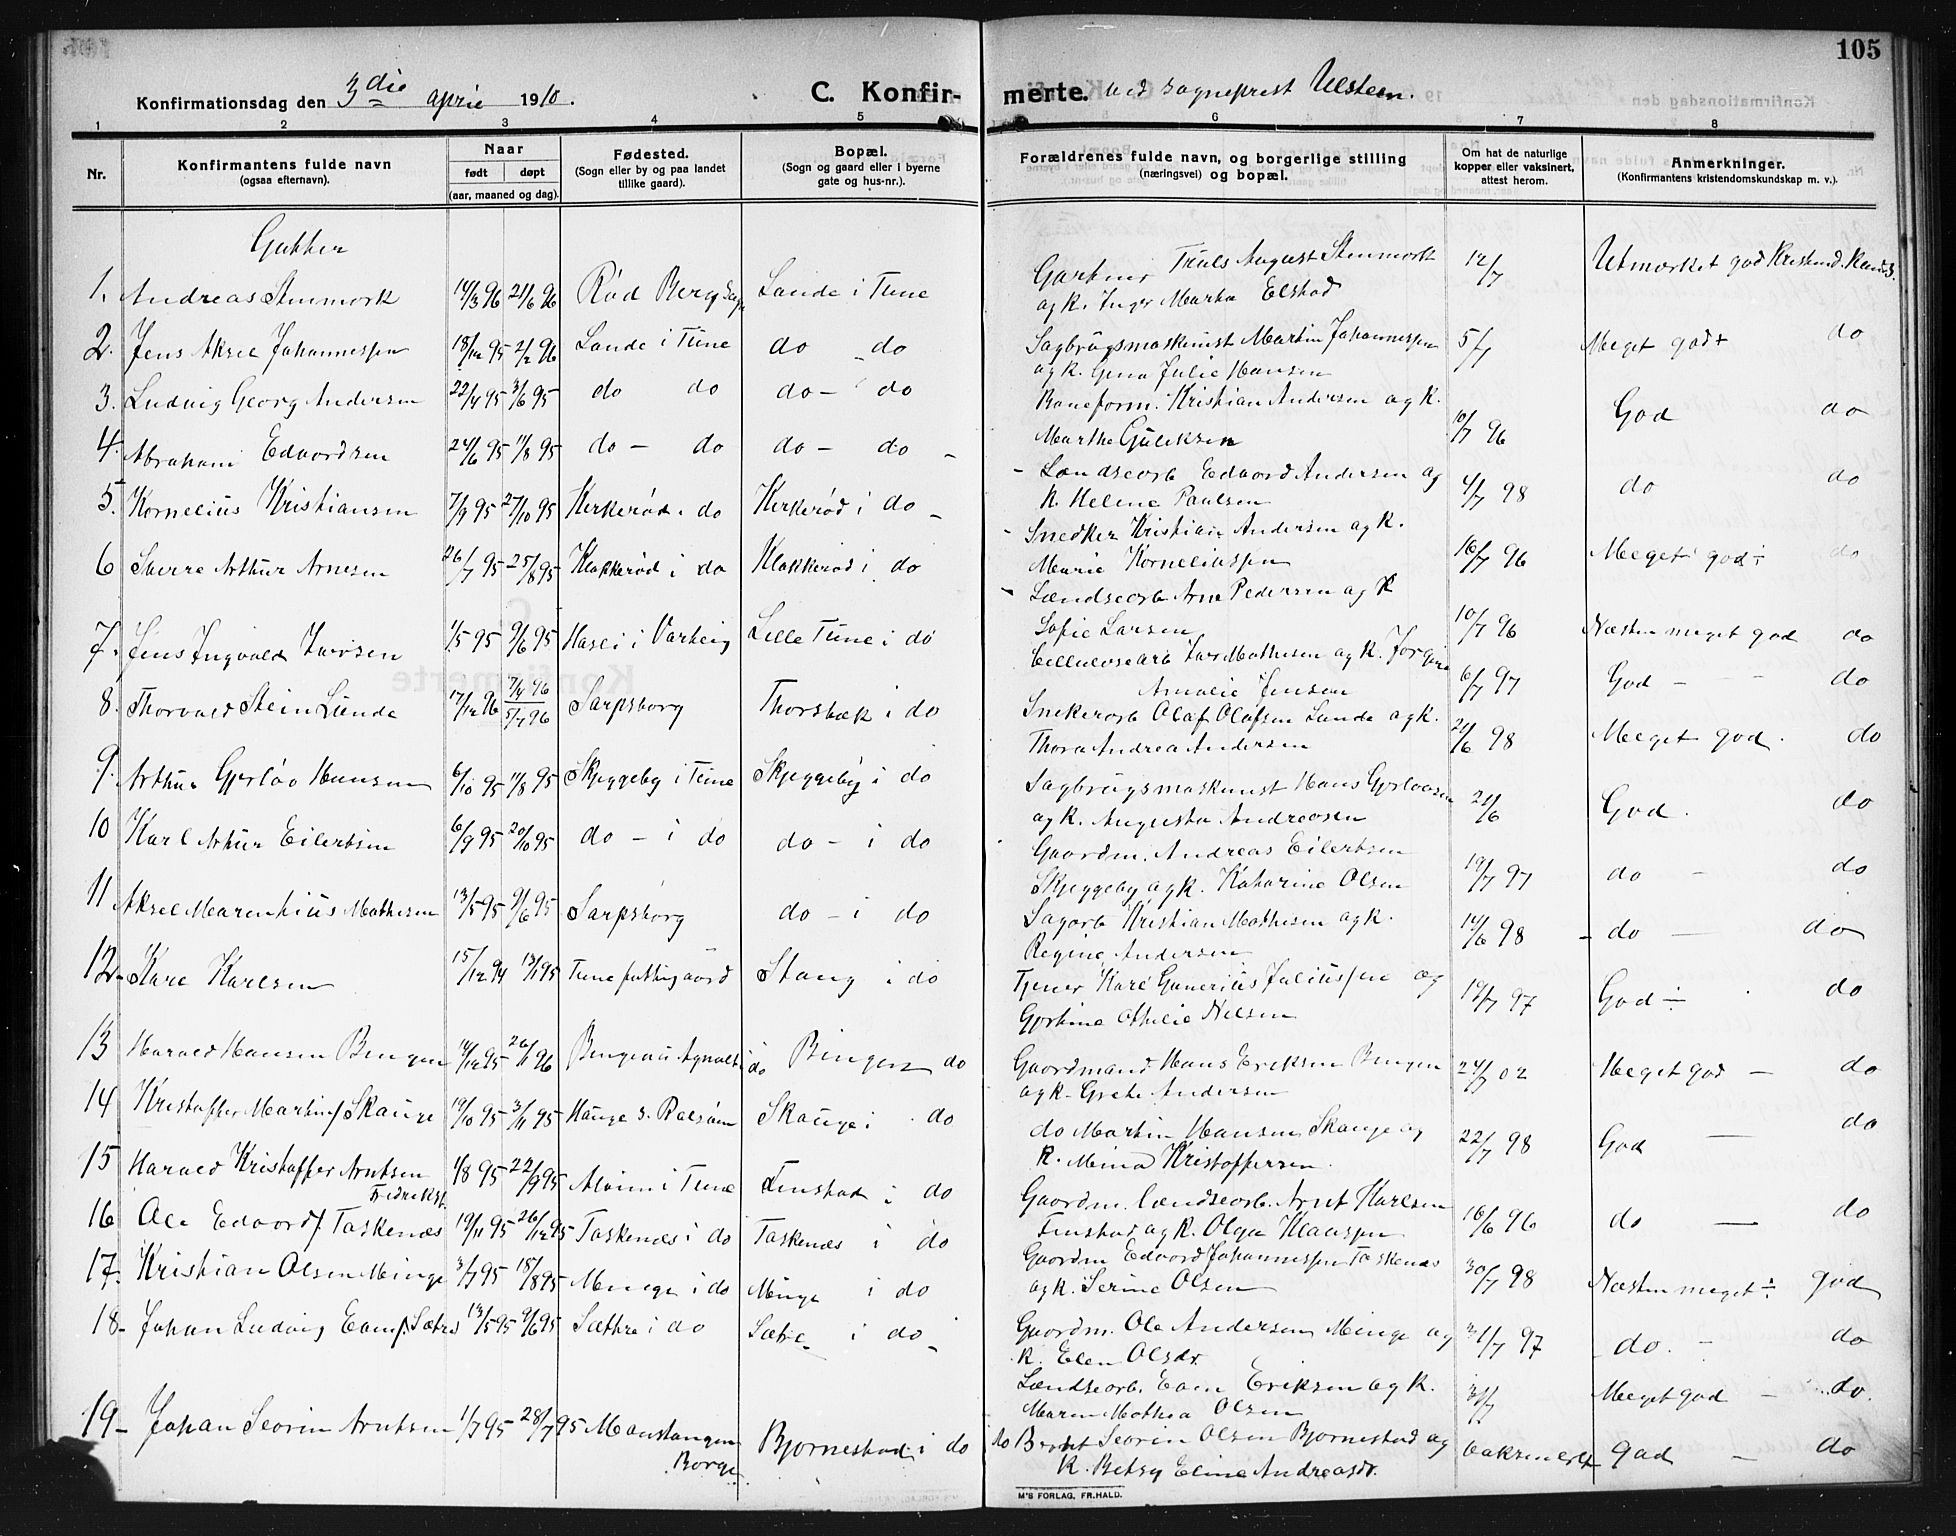 105
Konfirmationsdag den 3die april 1910. C. Konfirmerte. ved sogneprest Ulsteen.
1 2 3 4 5 6 7 8
Nr. Konfirmantens fulde navn (ogsaa efternavn). Naar født døpt (aar, maaned og dag). Fødested. (Sogn eller by og paa landet tillike gaard). Bopæl. (Sogn og gaard eller i byerne gate og hus-nr.). Forældrenes fulde navn, og borgerlige stilling (næringsvei) og bopæl. Om hat de naturlige kopper eller vaksinert, attest herom. Anmerkninger. (Konfirmantens kristendomskundskap m. v.).
Gutter
1. Andreas Stenmork 14/3 96 21/6 96 Rød Berg Sogn Lande i Tune Gartner Truls August Stenmork og k. Inger Marta Elstad 12/7 Utmerket god Kristend. kundsk.
2. Jens Aksel Johannessen 18/12 95 2/2 96 Lande i Tune do do Sagbrugsmaskinist Martin Johannessen og k. Gina Julie Hansen 5/7 Meget god + do
3. Ludvig Georg Andersen 22/4 95 3/6 95 do do do - do Baneform. Kristian Andersen og k. Marthe Guliksen 10/7 96 God do
4. Abraham Edvardsen 24/6 95 11/8 95 do - do do - do - Landsearb Edvard Andersen og k. Helene Paulsen 4/7 98 do do
5. Kornelius Kristiansen 7/9 95 27/10 95 Kirkerød i do Kirkerød i do - Snedker Kristian Andersen og k. Marie Korneliussen 16/7 96 Meget god ÷ do
6 Sverre Arthur Arnesen 26/7 95 25/8 95 Klokkerød i do Klokkerød i do - Lændsearb Arne Pedersen og k Sofie Larsen 10/7 96 Næsten meget god do
7. Jens Ingvald Larsen 1/5 95 9/6 95 Hasle i Varteig Lille Tune i do Cellulosearb Lars Mathisen og k. Jorgine Amalie Jensen 6/7 97 God - do
8. Thorvald Stein Lunde 17/12 96 7/4 96 5/7 96 Sarpsborg Thorsbæk i do Snekerarb Olaf Olafsen Lunde og k. Thora Andrea Andersen 21/6 98 Meget god. do
9. Arthur Gjerløv Hansen 6/10 95 11/8 95 Skjeggeby i Tune Skjeggeby i do Sagbrugsmaskinist Hans Gjerlovsen og k. Augusta Andreasen 21/6 God. do
10 Karl Arthur Eilertsen 6/9 95 20/10 95 do - i do do - i do Gaardm. Andreas Eilertsen Skjeggeby og k. Katarine Olsen 19/7 97 do - do
11 Aksel Marenhius Mathisen 13/5 95 9/6 95 Sarpsborg do - i do Sagarb Kristian Mathisen og k. Regine Andersen 14/6 98 - do - do
12- Kare Karlsen 15/12 94 13/1 95 Tune fattiggaard Stang i do Tjener Karl Gunerius Juliussen og Gjertine Othilie Nilsen 19/7 97 God ÷ do
13 Harald Hansen Bingen 14/12 95 26/1 96 Bingen i do Bingen do Gaardmand Hans Eriksen Bingen og k. Grete Andersen 24/7 02 Meget god - do
14 Kristoffer Martinsf Skauge 19/10 95 3/11 95 Hauge s. Skauge i do do Martin Hansen Skauge og k. Mina Kristoffersen. 22/7 98 God - do
15 Harald Kristoffer Arntsen 1/8 95 22/9 95 Alvim i Tune Finstad i do Gaardm. Lændsearb. Arnt Karlsen Finstad og k. Olga Klausen 16/6 96 do - do
16 Ole Edvard f Taskenæs Fredrikst. 19/11 95 26/12 95 Taskenæs i do Taskenæs i do Gaardm Edvard Johannessen Taskenæs og k. Serine Olsen 30/7 98 Næsten meget ÷ god
17. Kristian Olsen Minge 3/7 95 18/8 95 Minge i do Minge i do Gaardm. Ole Andersen Minge og k. Elen Olsdr. 31/7 97 do. - do
18- Johan Ludvig Evensf. Sætre 13/5 95 9/6 95 Sæthre i do Sætre i do - Lændsearb. Even Eriksen og k. Maren Mathea Olsen 31/7 Meget god - do.
19- Johan Severin Arntsen 1/7 95 28/7 95 Moustangen Borge. Bjørnestad i do do Arnt Severin Olsen Bjørnestad og k. Betsy Eline Andreasdr. Vaksinert god - do
M'S FORLAG, FR.HALD.